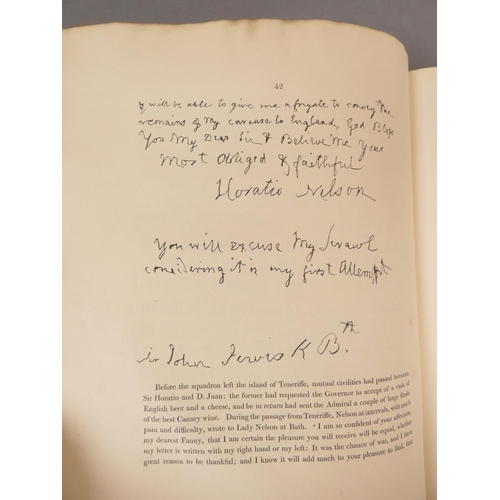 42
y will be able to give me a frigate to convey the
remains of my carcuse to England, God Bless
You My Dear Sir & Believe Me Your
Most Obliged & faithful
Horatio Nelson
You will excuse My Scrawl
considering it is my first Attempt
Sir John Jervis K Bth.
Before the squadron left the island of Teneriffe, mutual civilities had passed between
Sir Horatio and D. Juan: the former had requested the Governor to accept of a cask of
English beer and a cheese, and he in return had sent the Admiral a couple of large flasks
of the best Canary wine. During the passage from Teneriffe, Nelson at intervals, with much
pain and difficulty, wrote to Lady Nelson at Bath. ‘I am so confident of your affection,
my dearest Fanny, that I am certain the pleasure you will receive will be equal, whether
my letter is written with my right hand or my left: It was the chance of war, and I have
great reason to be thankful; and I know it will add much to your pleasure to find, that